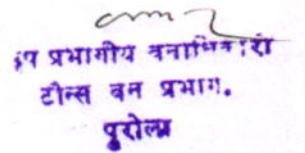 उप प्रभागीय वनाधिकारी
टौन्स वन प्रभाग.
पुरोला